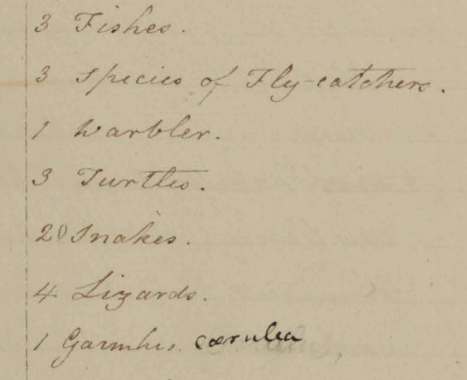 3 Fishes.
3 Species of Fly-catchers.
1 Warbler.
3 Turtles.
20 Snakes.
4 Lizards.
1 cærulea